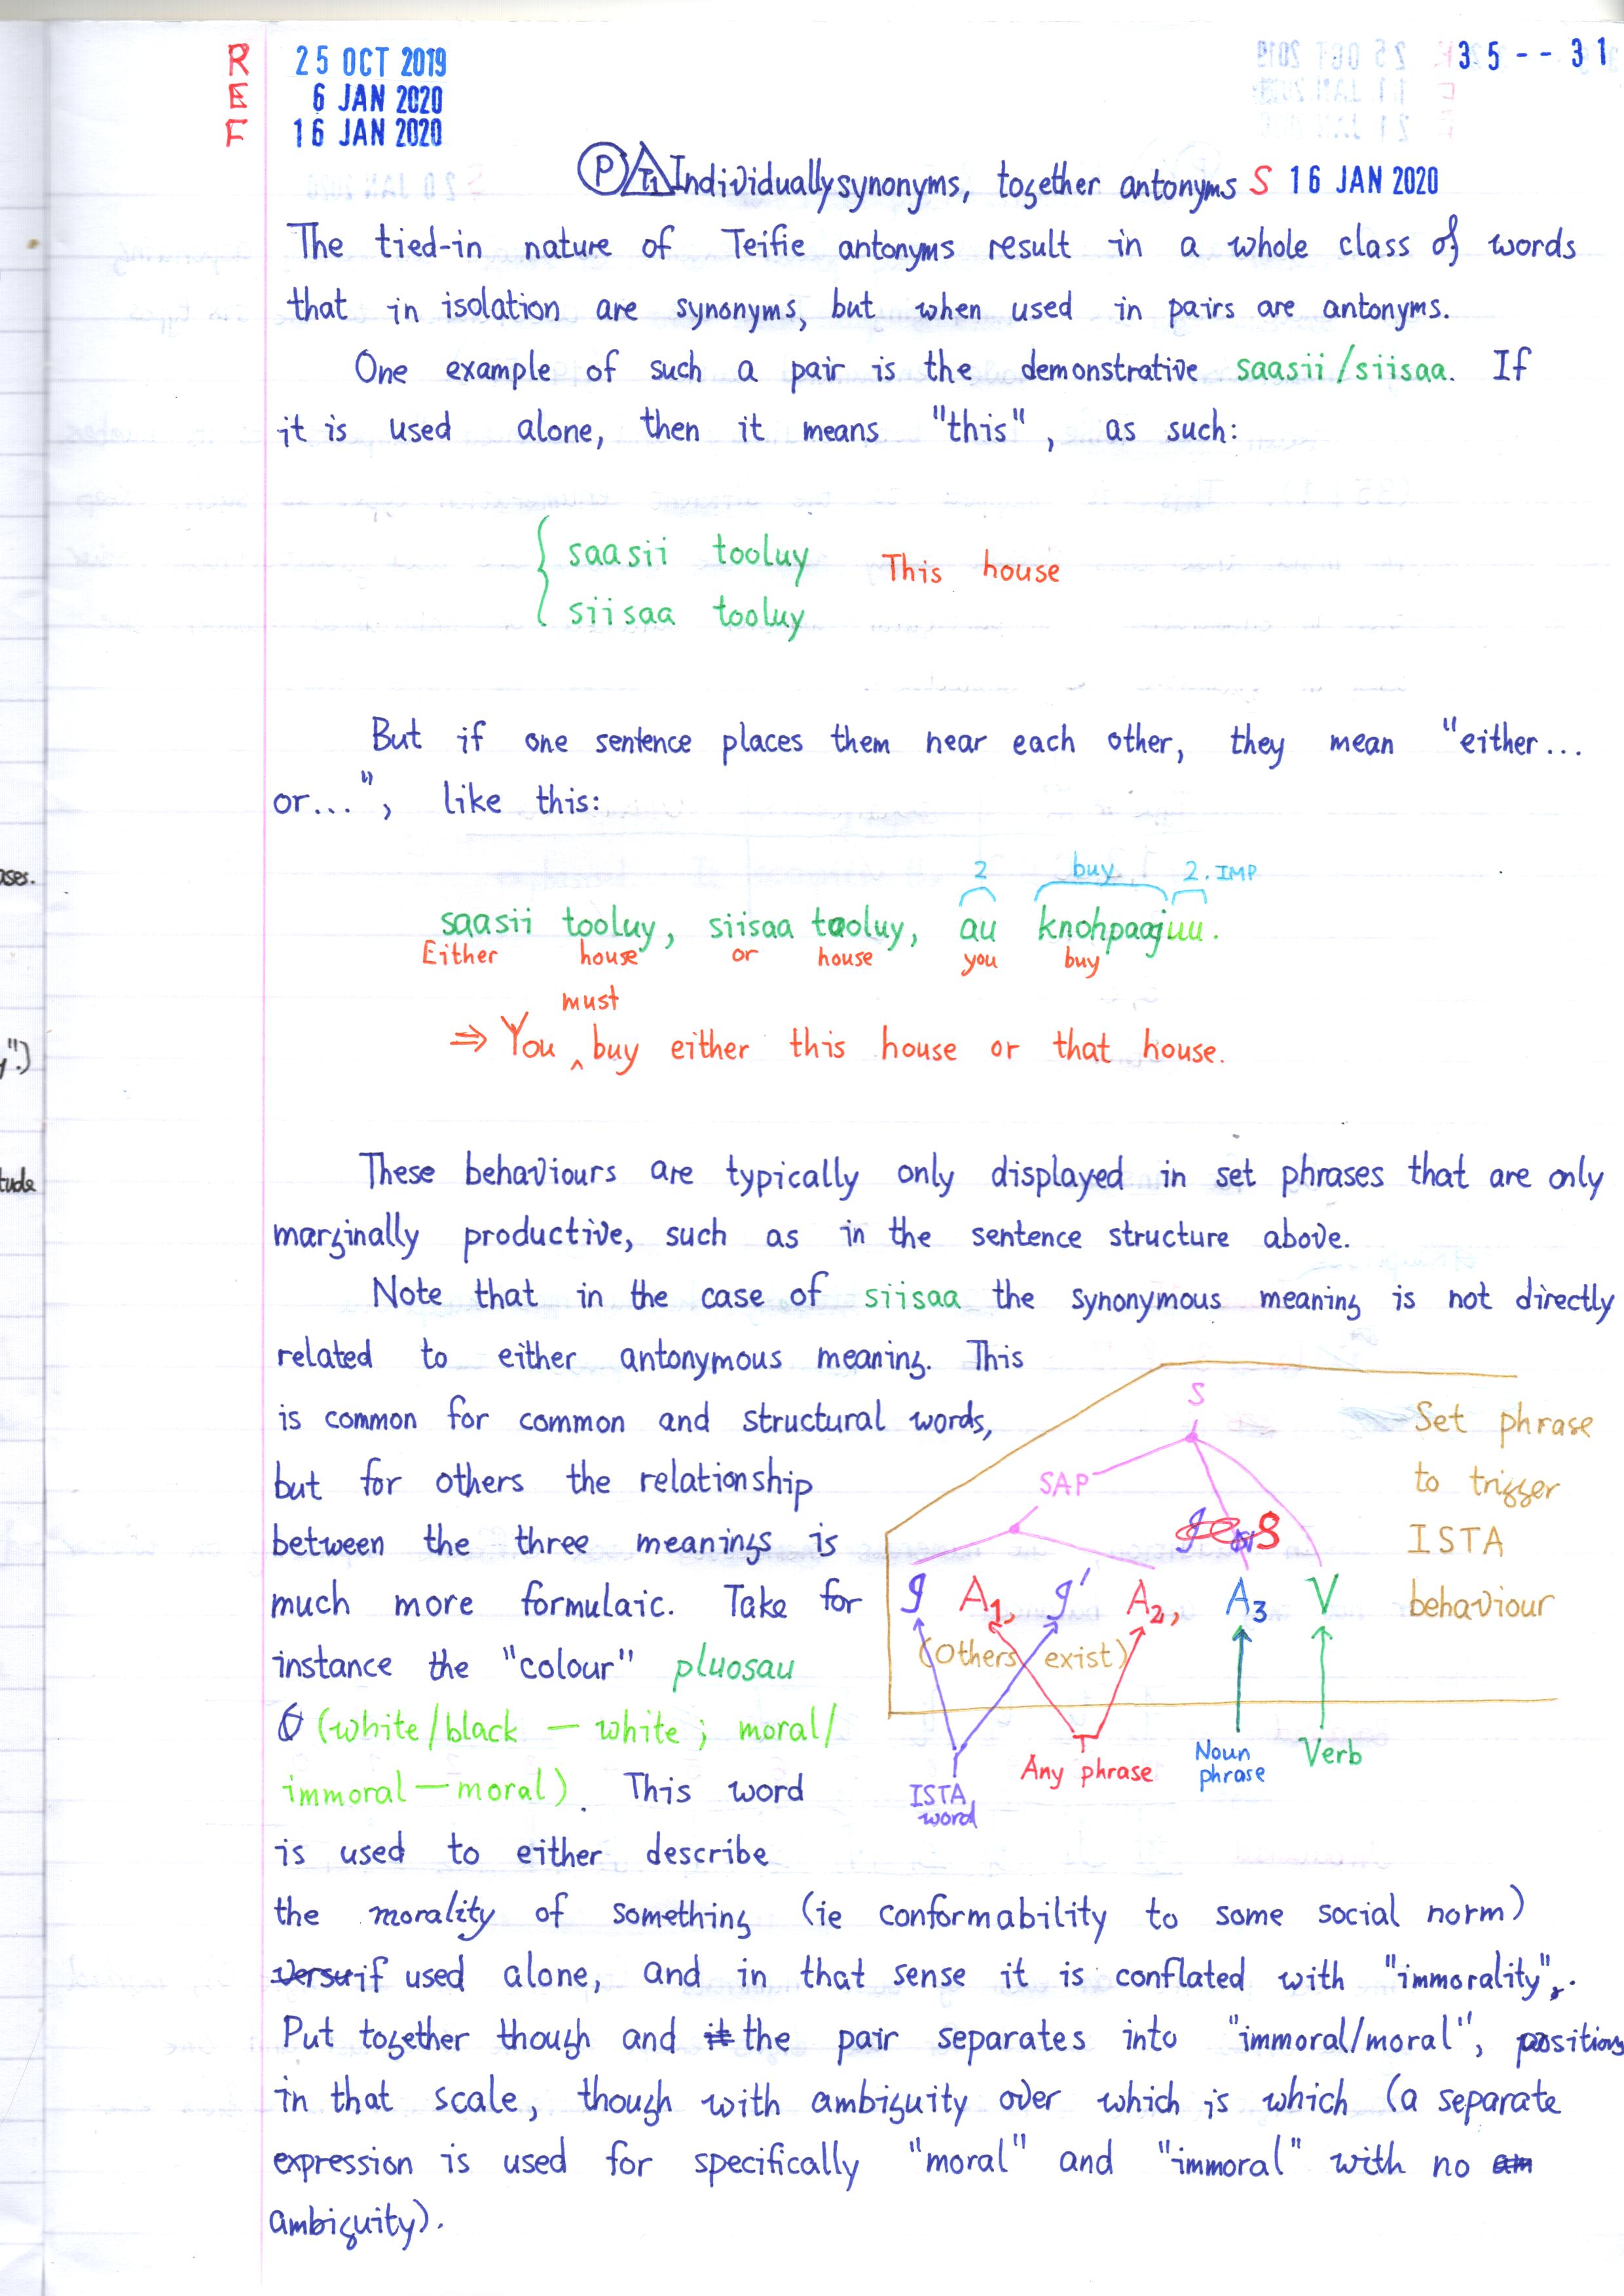 R 25 OCT 2019 35 -- 31
E 6 JAN 2020
F 16 JAN 2020
P T1 Individually synonyms, together antonyms S 16 JAN 2020
The tied-in nature of Teifie antonyms result in a whole class of words
that in isolation are synonyms, but when used in pairs are antonyms.
One example of such a pair is the demonstrative saasii/siisaa. If
it is used alone, then it means "this", as such:
saasii tooluy This house
siisaa tooluy
But if one sentence places them near each other, they mean "either...
or...", like this:
2 buy 2.IMP
saasii tooluy, siisaa tooluy, au knohpaajuu.
Either house or house you buy
must
⇒ You ^ buy either this house or that house.
ases.
y".)
These behaviours are typically only displayed in set phrases that are only
tude
marginally productive, such as in the sentence structure above.
Note that in the case of siisaa the synonymous meaning is not directly
related to either antonymous meaning. This
is common for common and structural words,
but for others the relationship
between the three meanings is
much more formulaic. Take for
instance the "colour" pluosau
(white/black — white; moral/
immoral — moral). This word
is used to either describe
S
SAP
S
g A1, g' A2, A3 V
(Others exist)
ISTA
word
Any phrase
Noun
phrase
Verb
Set phrase
to trigger
ISTA
behaviour
the morality of something (ie conformability to some social norm)
if used alone, and in that sense it is conflated with "immorality".
Put together though and the pair separates into "immoral/moral", positions
in that scale, though with ambiguity over which is which (a separate
expression is used for specifically "moral" and "immoral" with no am
ambiguity).